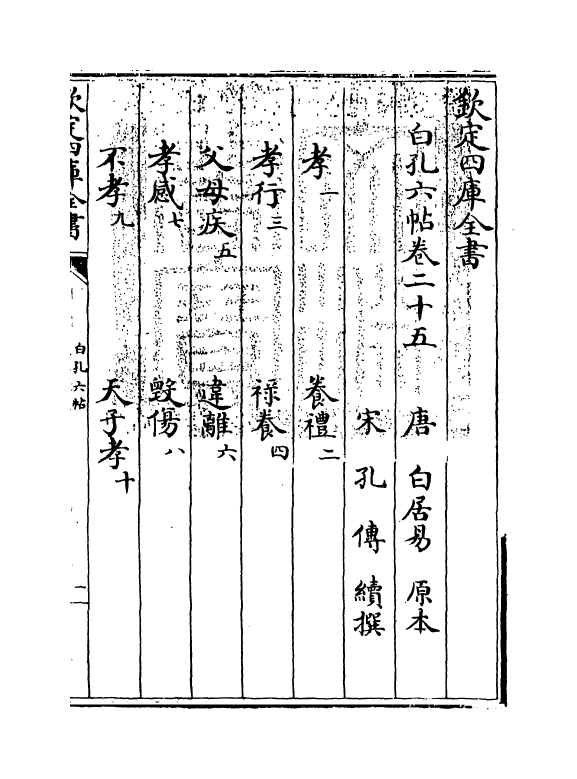 欽定四庫全書
白孔六帖卷二十五　唐　白居易　原本
宋　孔　傳　續撰
孝一　養禮二
孝行三　祿養四
父母疾五　違離六
孝感七　毀傷八
不孝九　天子孝十
欽定四庫全書　白孔六帖　一